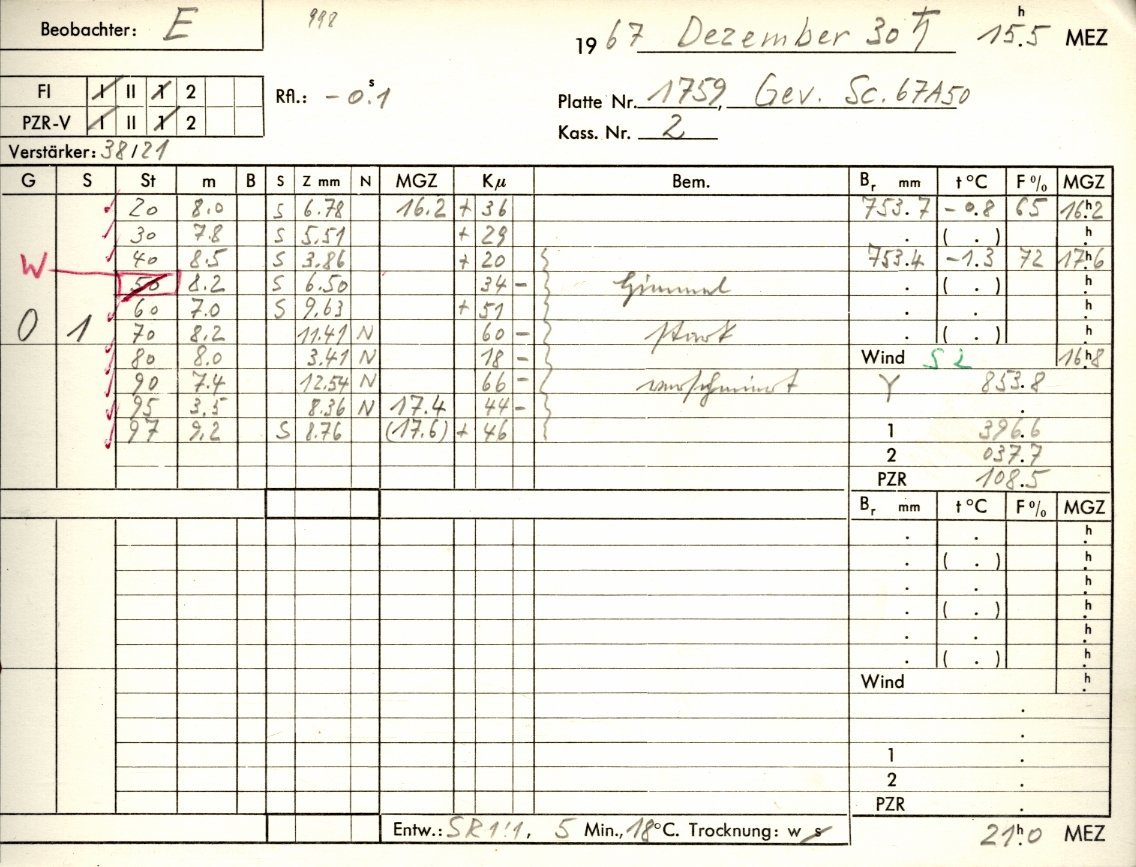 Beobachter: E 998 19 67 Dezember 30 ♄ 15.5 h MEZ
FI I II 1 2 Rfl.: - 0.1 s Platte Nr. 1759, Gev. Sc. 67A50
PZR-V I II 1 2 Kass. Nr. 2
Verstärker: 38/21
G S St m B S Z mm N MGZ Kμ Bem. Br mm t °C F % MGZ
20 8.0 S 6.78 16.2 + 36 753.7 -0.8 65 16.h2
30 7.8 S 5.51 + 29 . ( . ) h.
40 8.5 S 3.86 + 20 753.4 -1.3 72 17.h6
W 50 8.2 S 6.50 34 - Himmel . ( . ) h.
60 7.0 S 9.63 + 51 . . h.
0 1 70 8.2 11.41 N 60 - stark . ( . ) h.
80 8.0 3.41 N 18 - Wind S 2 16.h8
90 7.4 12.54 N 66 - verschmiert Y 853.8
95 3.5 8.36 N 17.4 44 - .
97 9.2 S 8.76 (17.6) + 46 1 396.6
2 037.7
PZR 108.5
Br mm t °C F % MGZ
. . h.
. ( . ) h.
. . h.
. ( . ) h.
. . h.
. ( . ) h.
Wind h.
.
.
1 .
2 .
PZR .
Entw.: SR 1:1, 5 Min., 18 °C. Trocknung: w s 21.h0 MEZ